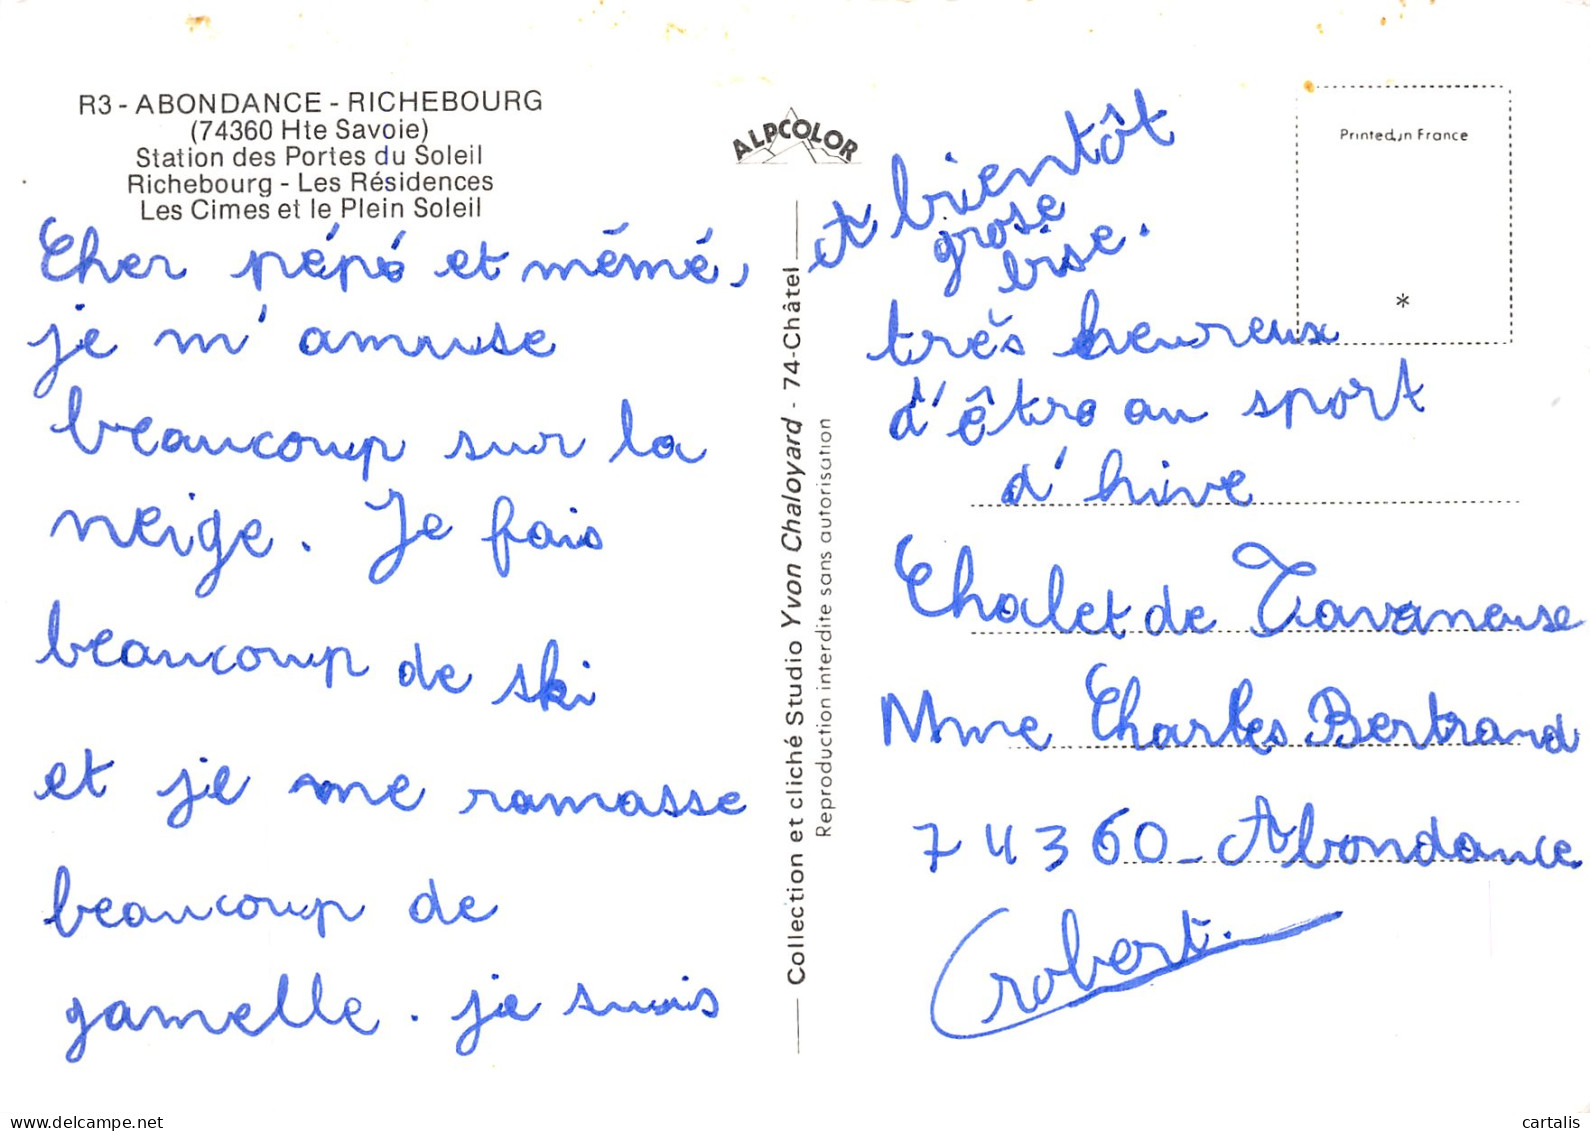 R3 - ABONDANCE - RICHEBOURG
(74360 Hte Savoie)
Station des Portes du Soleil
Richebourg - Les Résidences
Les Cimes et le Plein Soleil
Cher pépé et mémé,
je m'amuse
beaucoup sur la
neige. Je fais
beaucoup de ski
et je me ramasse
beaucoup de
gamelle. je suis
ALPCOLOR
Collection et cliché Studio Yvon Chaloyard - 74-Châtel
Reproduction interdite sans autorisation
Printed in France
*
A bientôt
grose
bise.
très heureux
d'être au sport
d'hive
Chalet de Tavaneuse
Mme Charles Bertrand
74360 - Abondance
robert.
delcampe.net
cartalis